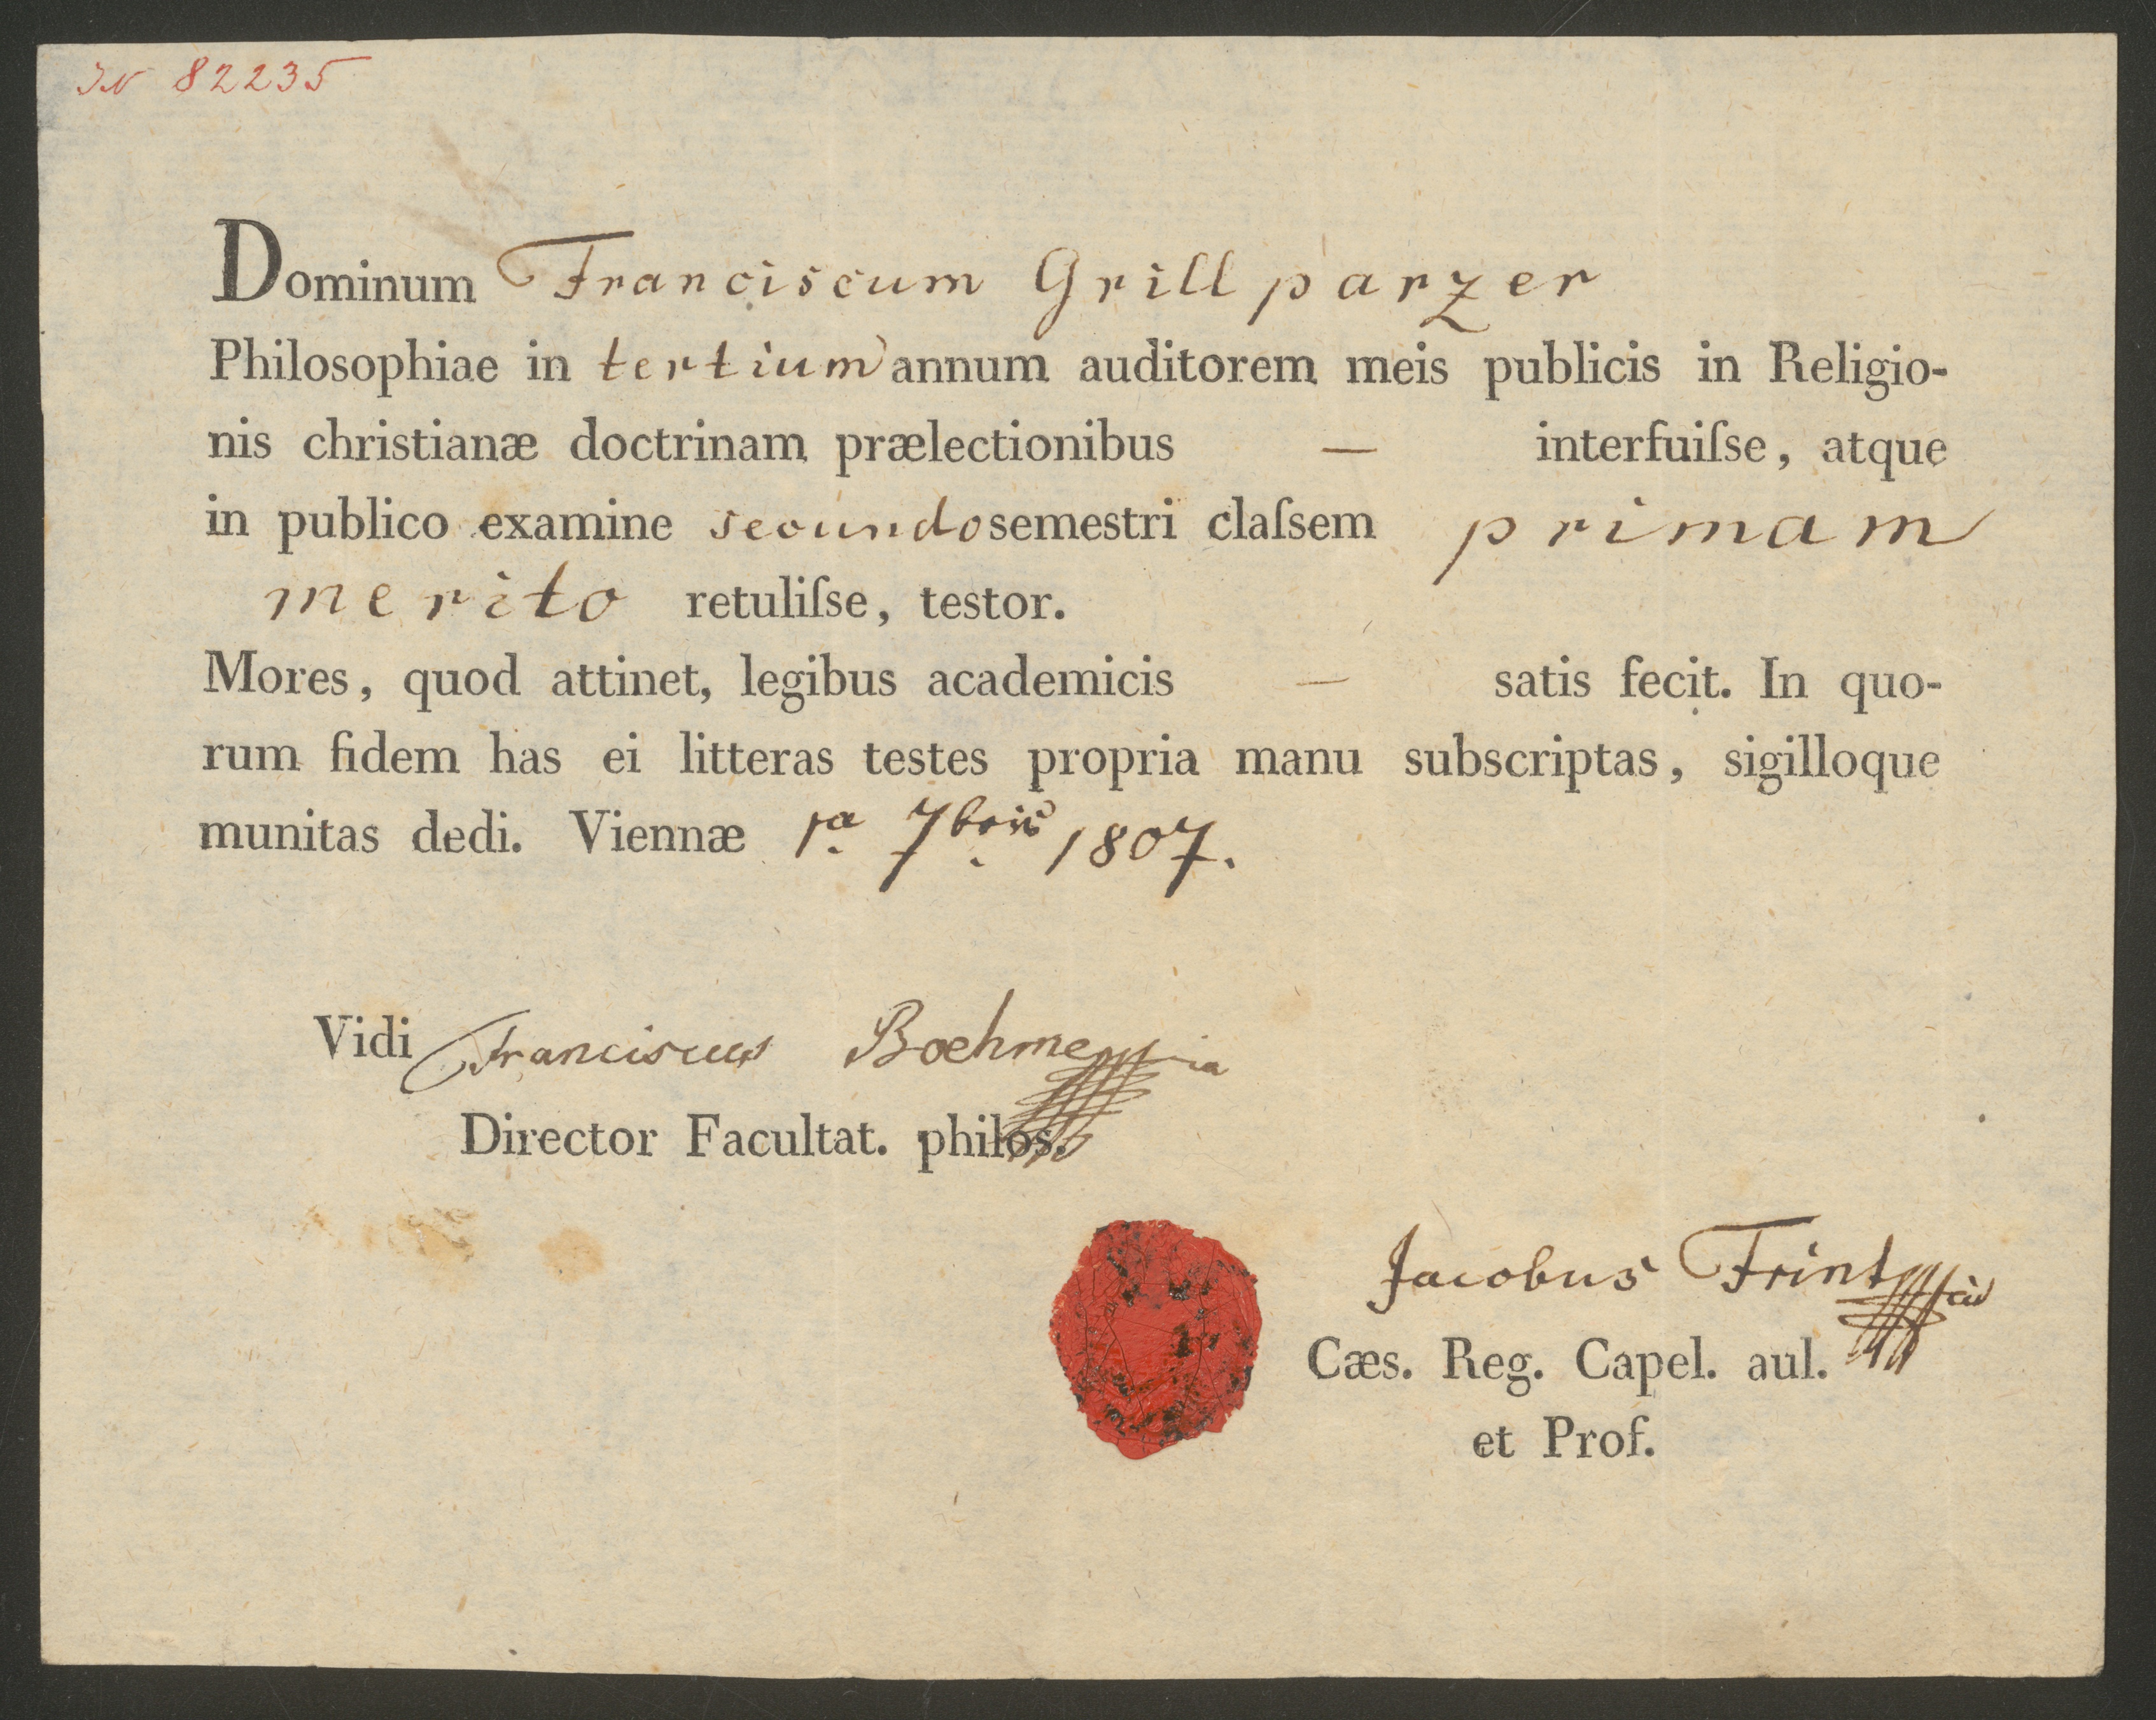 IN 82235
Dominum Franciscum Grillparzer
Philosophiae in tertium annum auditorem meis publicis in Religio-
nis christianæ doctrinam prælectionibus — interfuiſse, atque
in publico examine secundo semestri claſsem primam
merito retuliſse, testor.
Mores, quod attinet, legibus academicis — satis fecit. In quo-
rum fidem has ei litteras testes propria manu subscriptas, sigilloque
munitas dedi. Viennæ 1a. 7bris 1807.
Vidi Franciscus Boehm
Director Facultat. philos.
Jacobus Frint
Cæs. Reg. Capel. aul.
et Prof.